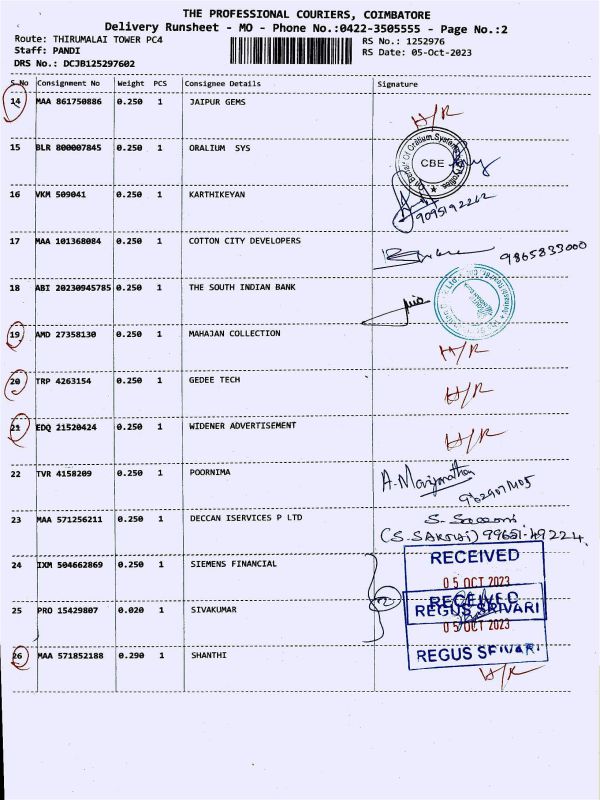 THE PROFESSIONAL COURIERS, COIMBATORE
Delivery Runsheet - MO - Phone No.:0422-3505555 - Page No.:2
Route: THIRUMALAI TOWER PC4
RS No.: 1252976
Staff: PANDI
RS Date: 05-Oct-2023
DRS No.: DCJB125297602
S No Consignment No Weight PCS Consignee Details Signature
14 MAA 861750886 0.250 1 JAIPUR GEMS
H/R
15 BLR 800007845 0.250 1 ORALIUM SYS
CBE
16 VKM 509041 0.250 1 KARTHIKEYAN
9095192262
17 MAA 101368084 0.250 1 COTTON CITY DEVELOPERS
9865833000
18 ABI 20230945785 0.250 1 THE SOUTH INDIAN BANK
19 AMD 27358130 0.250 1 MAHAJAN COLLECTION
H/R
20 TRP 4263154 0.250 1 GEDEE TECH
H/R
21 EDQ 21520424 0.250 1 WIDENER ADVERTISEMENT
H/R
22 TVR 4158209 0.250 1 POORNIMA
23 MAA 571256211 0.250 1 DECCAN ISERVICES P LTD
24 IXM 504662869 0.250 1 SIEMENS FINANCIAL
RECEIVED
05 OCT 2023
25 PRO 15429807 0.020 1 SIVAKUMAR
2
RECEIVED
REGUS SRIVARI
05 OCT 2023
26 MAA 571852188 0.290 1 SHANTHI
REGUS SRIVARI
H/R